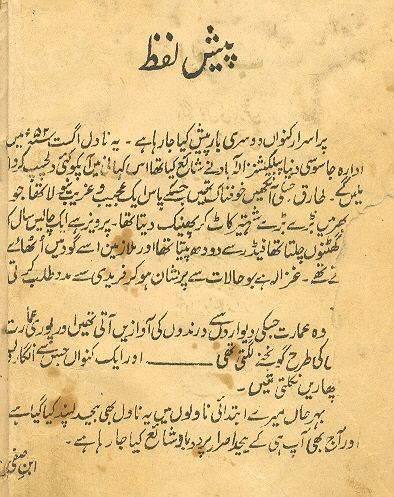 پیش لفظ
پراسرار کنواں دوسری بار پیش کیا جارہا ہے۔ یہ ناول اگست ۵۳ء میں
ادارہ جاسوسی دنیا پبلیکیشنز الہ آباد نے شائع کیا تھا اس کہانی میں آپکو کئی دلچسپ کردار
ملیں گے۔ طارق جسکی آنکھیں خوفناک تھیں جسکے پاس ایک عجیب و غریب نیولا تھا، جو
بڑے بڑے شہتیر کاٹ کر پھینک دیتا تھا۔ پرویز ہے ایک چالیس سال کا
گھٹنوں چلتا تھا فیڈر سے دودھ پیتا تھا اور ملازمین اسے گود میں اٹھائے
تھے۔ غزالہ ہے جو حالات سے پریشان ہو کر فریدی سے مدد طلب کرتی
وہ عمارت جسکی دیواروں سے درندوں کی آوازیں آتی تھیں اور پوری عمارت
کی طرح گونجنے لگتی تھی ــــــ اور ایک کنواں جس سے انگاروں
پھاریں نکلتی تھیں۔
بہر حال میرے ابتدائی ناولوں میں یہ ناول بھی بیحد پسند کیا گیا ہے
اور آج بھی آپ ہی کے بیحد اصرار پر دوبارہ شائع کیا جارہا ہے۔
ابن صفی